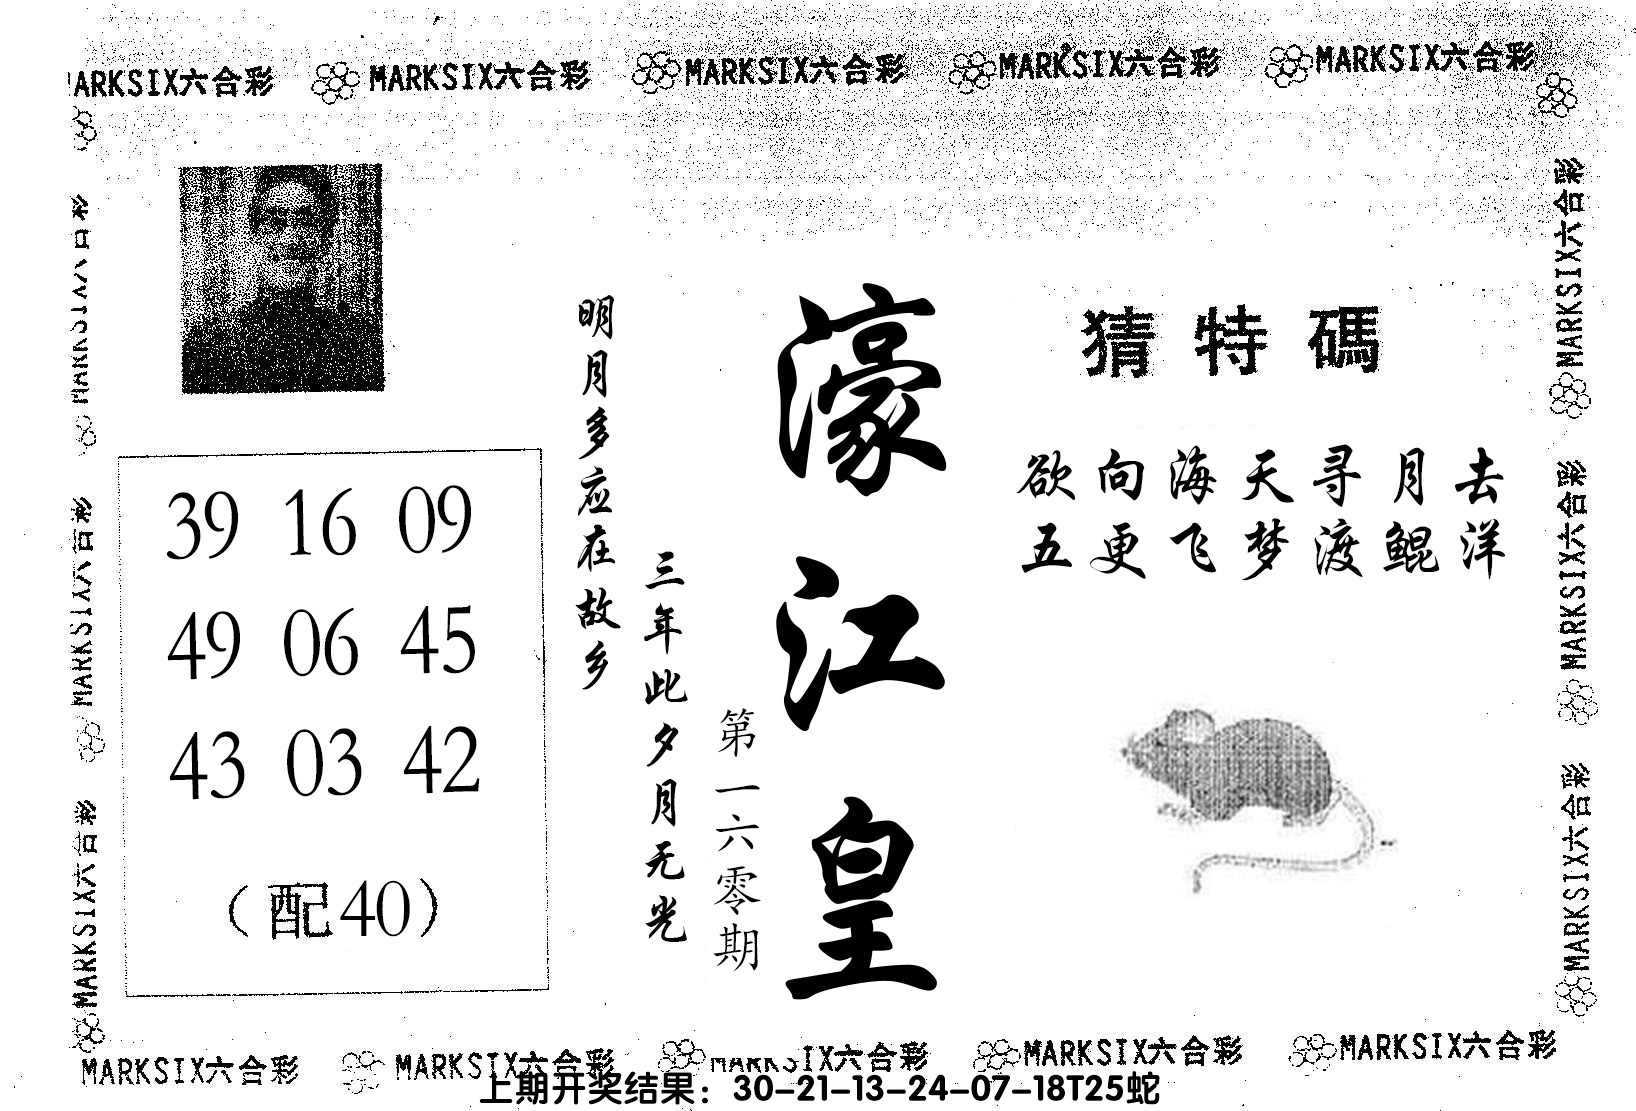 MARKSIX六合彩 MARKSIX六合彩 MARKSIX六合彩 MARKSIX六合彩
MARKSIX六合彩
MARKSIX六合彩
MARKSIX六合彩
MARKSIX六合彩
MARKSIX六合彩
39 16 09
49 06 45
43 03 42
（配40）
明月多应在故乡
三年此夕月无光
第一六零期
濠江皇
猜特碼
欲向海天寻月去
五更飞梦渡鲲洋
MARKSIX六合彩 MARKSIX六合彩 MARKSIX六合彩 MARKSIX六合彩
上期开奖结果：30-21-13-24-07-18T25蛇